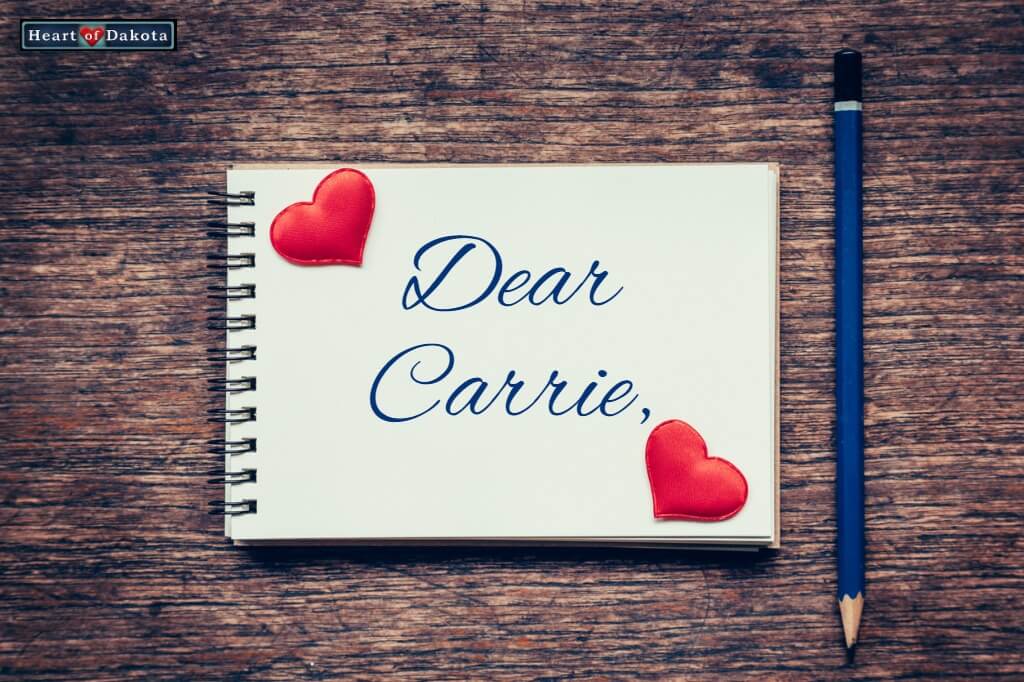 Heart of Dakota
Dear
Carrie,